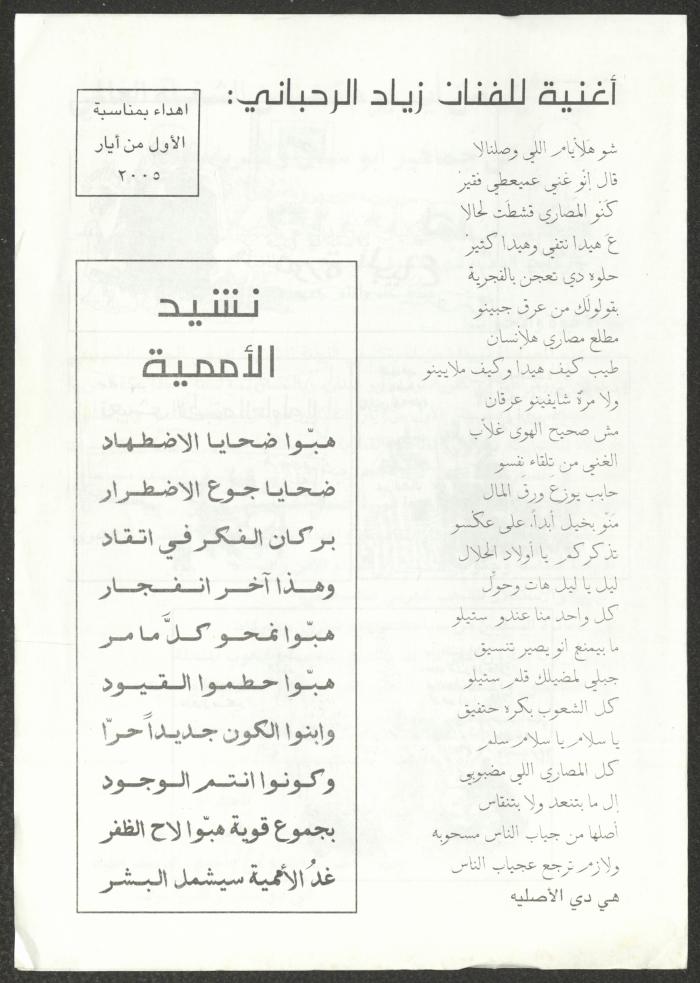 أغنية للفنان زياد الرحباني:
اهداء بمناسبة
الأول من أيار
٢٠٠٥
شو هَلأيام اللي وصلنالا
قال إنّو غني عميعطي فقير
كنّو المصاري قشطَت لحالا
عَ هيدا نتفي وهيدا كتير
حلوه دي تعجن بالفجرية
بقولولَك من عرق جبينو
مطلع مصاري هلإنسان
طيب كيف هيدا وكيف ملايينو
ولا مرّة شايفينو عرقان
مش صحيح الهوى غلاب
الغني من تِلقاء نِفسو
حابب يوزع ورق المال
مَنّو بخيل أبداً، على عكسو
تذكركم يا أولاد الحلال
ليل يا ليل هات وحوّل
كل واحد منا عندو ستيلو
ما بيمنع انو يصير تنسيق
جبلي لمضيلك قلم ستيلو
كل الشعوب بكرة حتفيق
يا سلام يا سلام سلم
كل المصاري اللي مضبوبي
إل ما بتنعد ولا بتنقاس
أصلها من جياب الناس مسحوبه
ولازم ترجع عجياب الناس
هي دي الأصليه
نشيد
الأممية
هبّوا ضحايا الاضطهاد
ضحايا جوع الاضطرار
بركان الفكر في اتقاد
وهذا آخر انفجار
هبّوا نمحو كلَّ ما مر
هبّوا حطموا القيود
وابنوا الكون جديداً حرّا
وكونوا انتم الوجود
بجموع قوية هبّوا لاح الظفر
غدُ الأممية سيشمل البشر